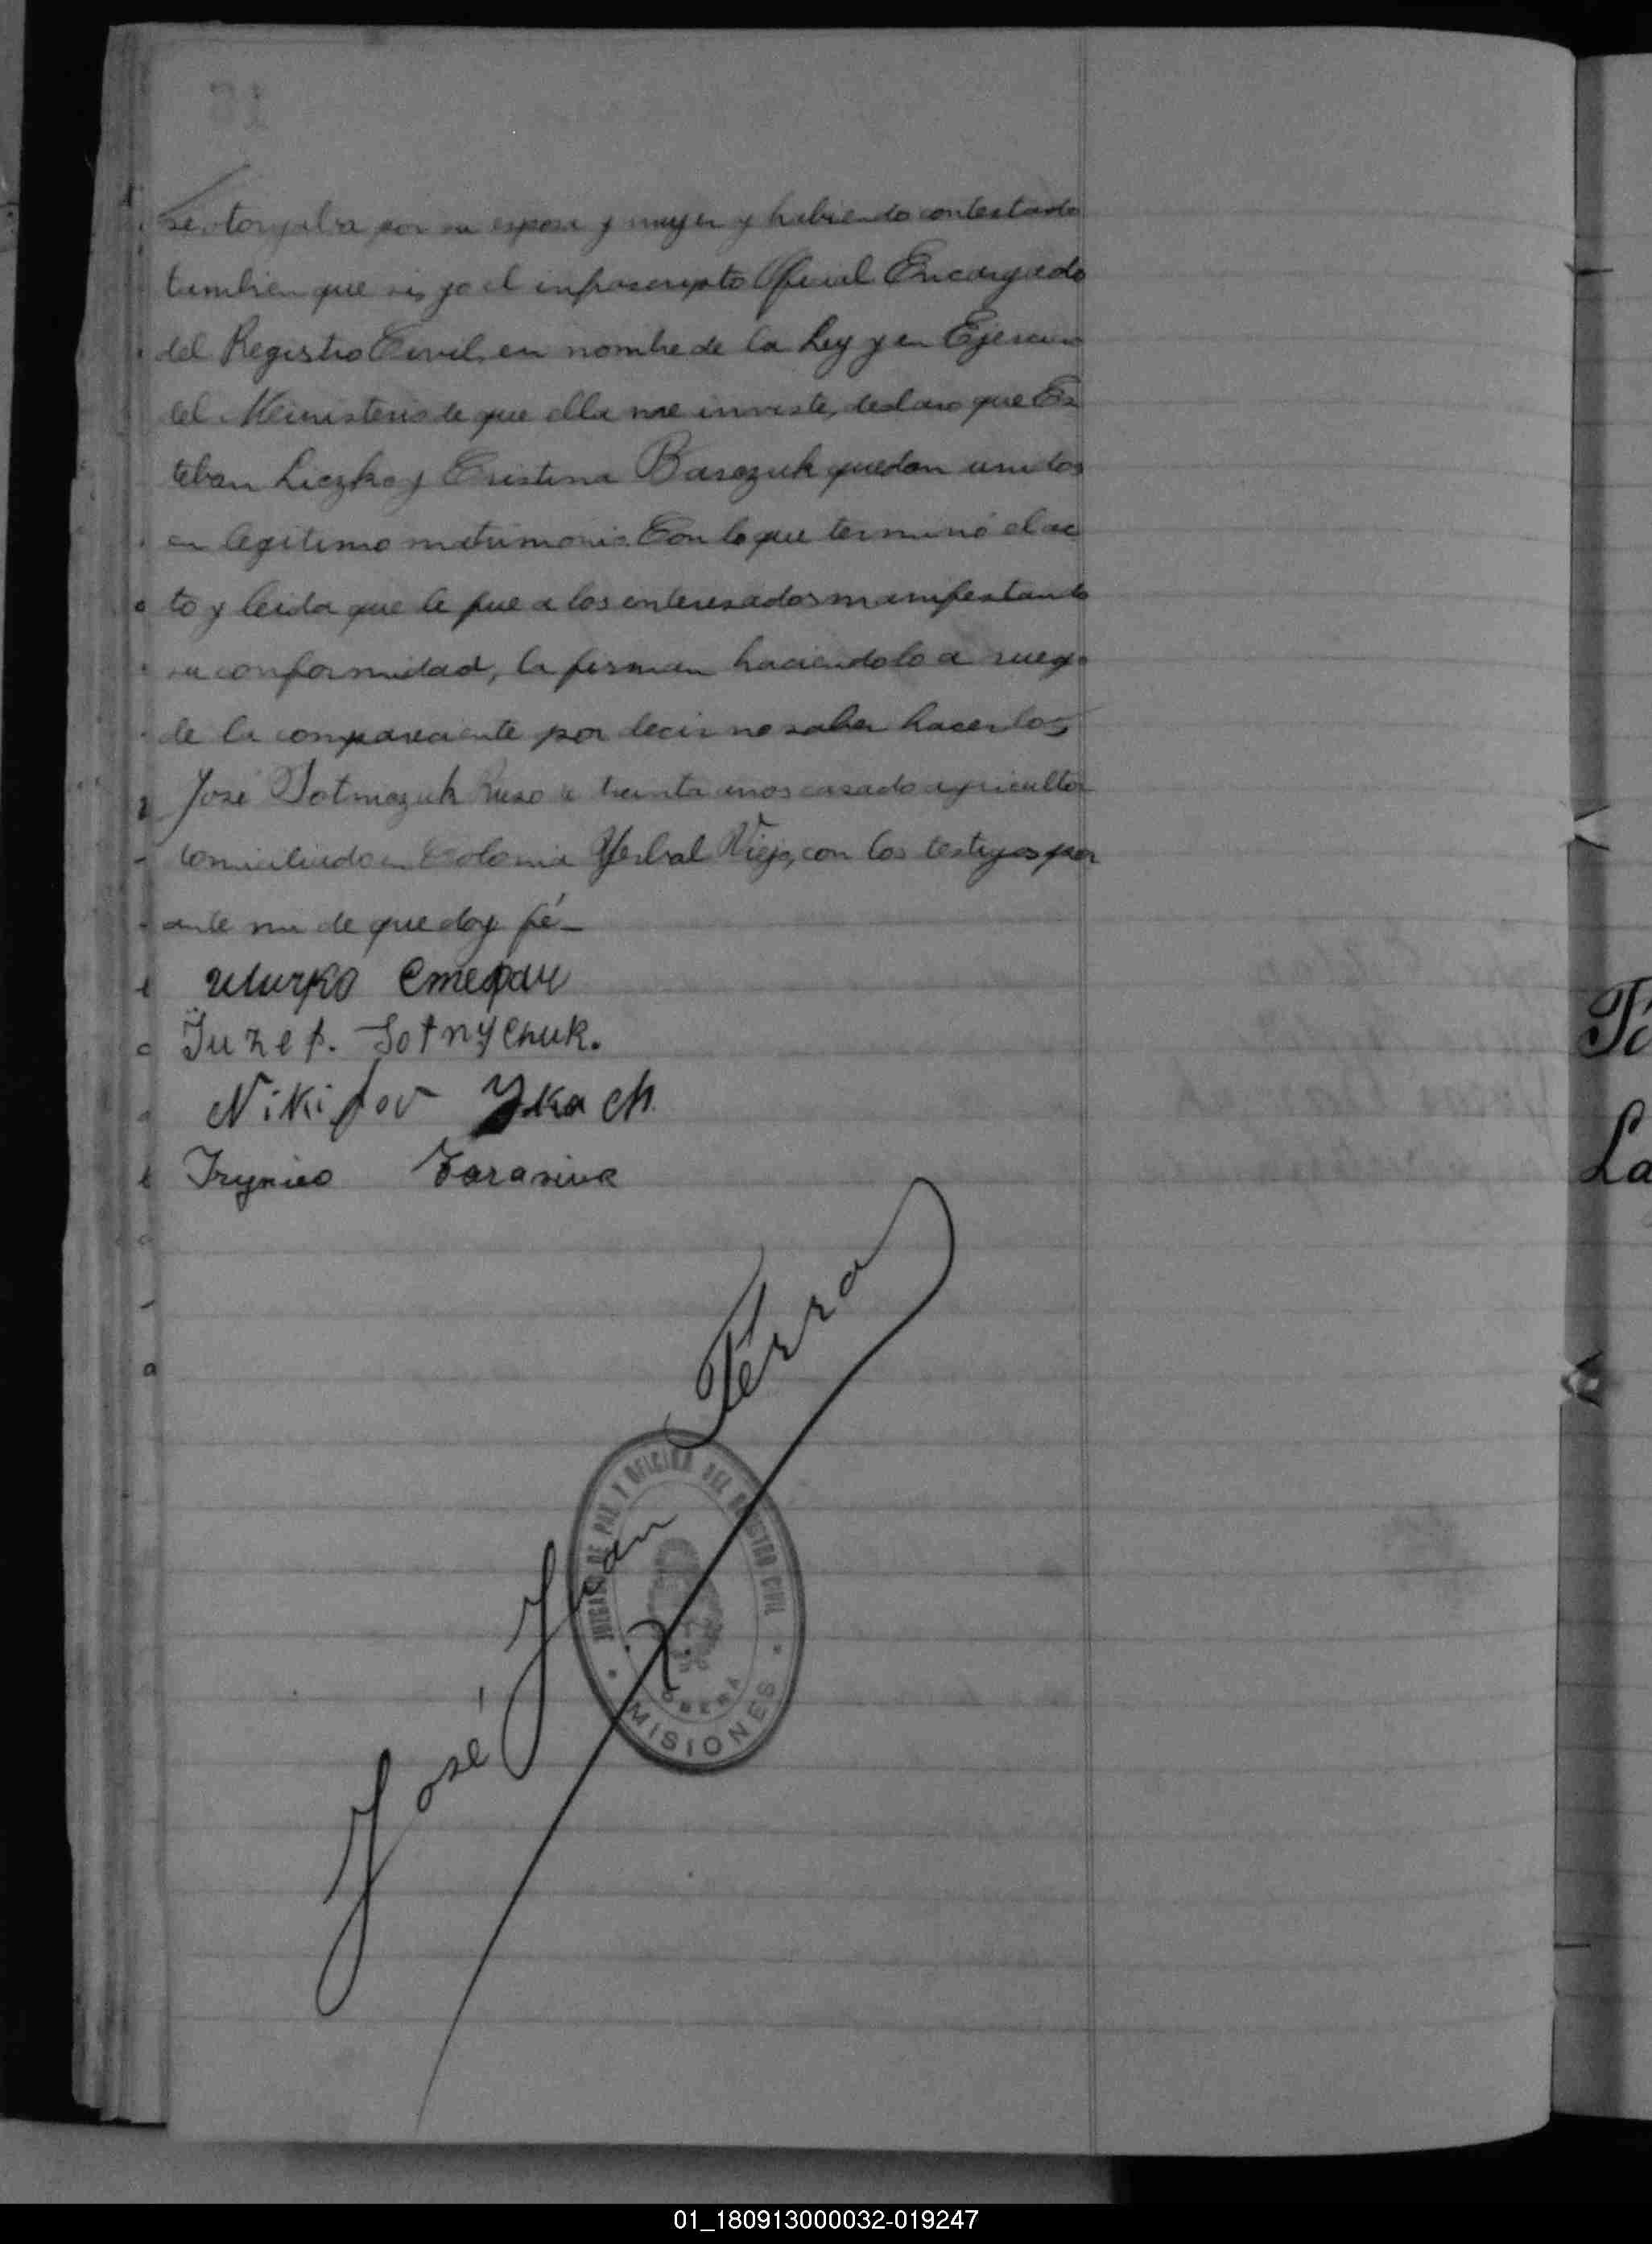 se otorgaba por su esposa y mujer y habiendo contestado
tambien que si, yo el infrascripto Oficial Encargado
del Registro Civil, en nombre de la Ley y en Ejercicio
del Ministerio de que ella me inviste, declaro que Es
teban Liczko y Cristina Barczuk quedan unidos
en legitimo matrimonio. Con lo que terminó el ac
to y leida que le fue a los interesados manifestando
su conformidad, la firman haciendolo a ruego
de la compareciente por decir no saber hacerlo
José Sotniczuk Ruso de treinta años casado agricultor
domiciliado en Colonia Yerbal Viejo, con los testigos por
ante mi de que doy fé_
Ичко Стефан
Juzef. Sotnychuk.
Nikifor
Tarasiuk
José Juan Ferra
JUZGADO DE PAZ Y OFICINA DEL REGISTRO CIVIL
OBERÁ
MISIONES
To
La
01_180913000032-019247